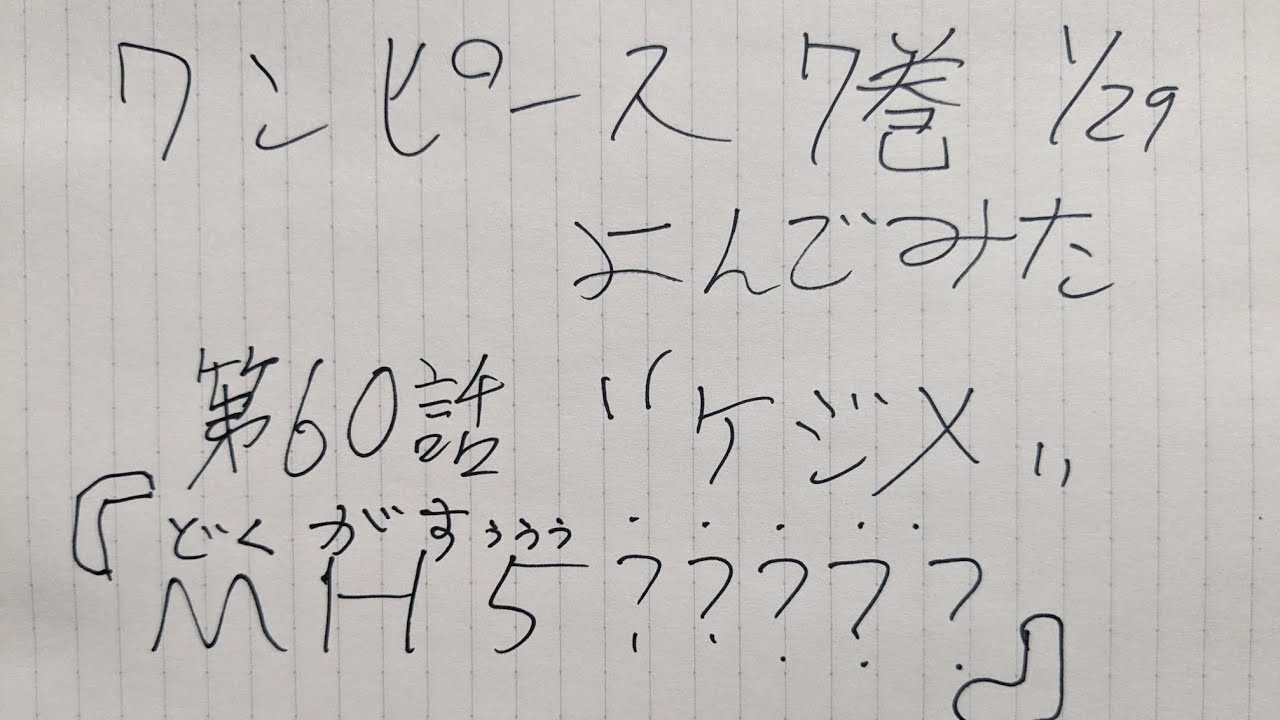 ワンピース 7巻 1/29
よんでみた
第60話 "ケジメ"
どくがすぅぅぅ
『MH5?????』